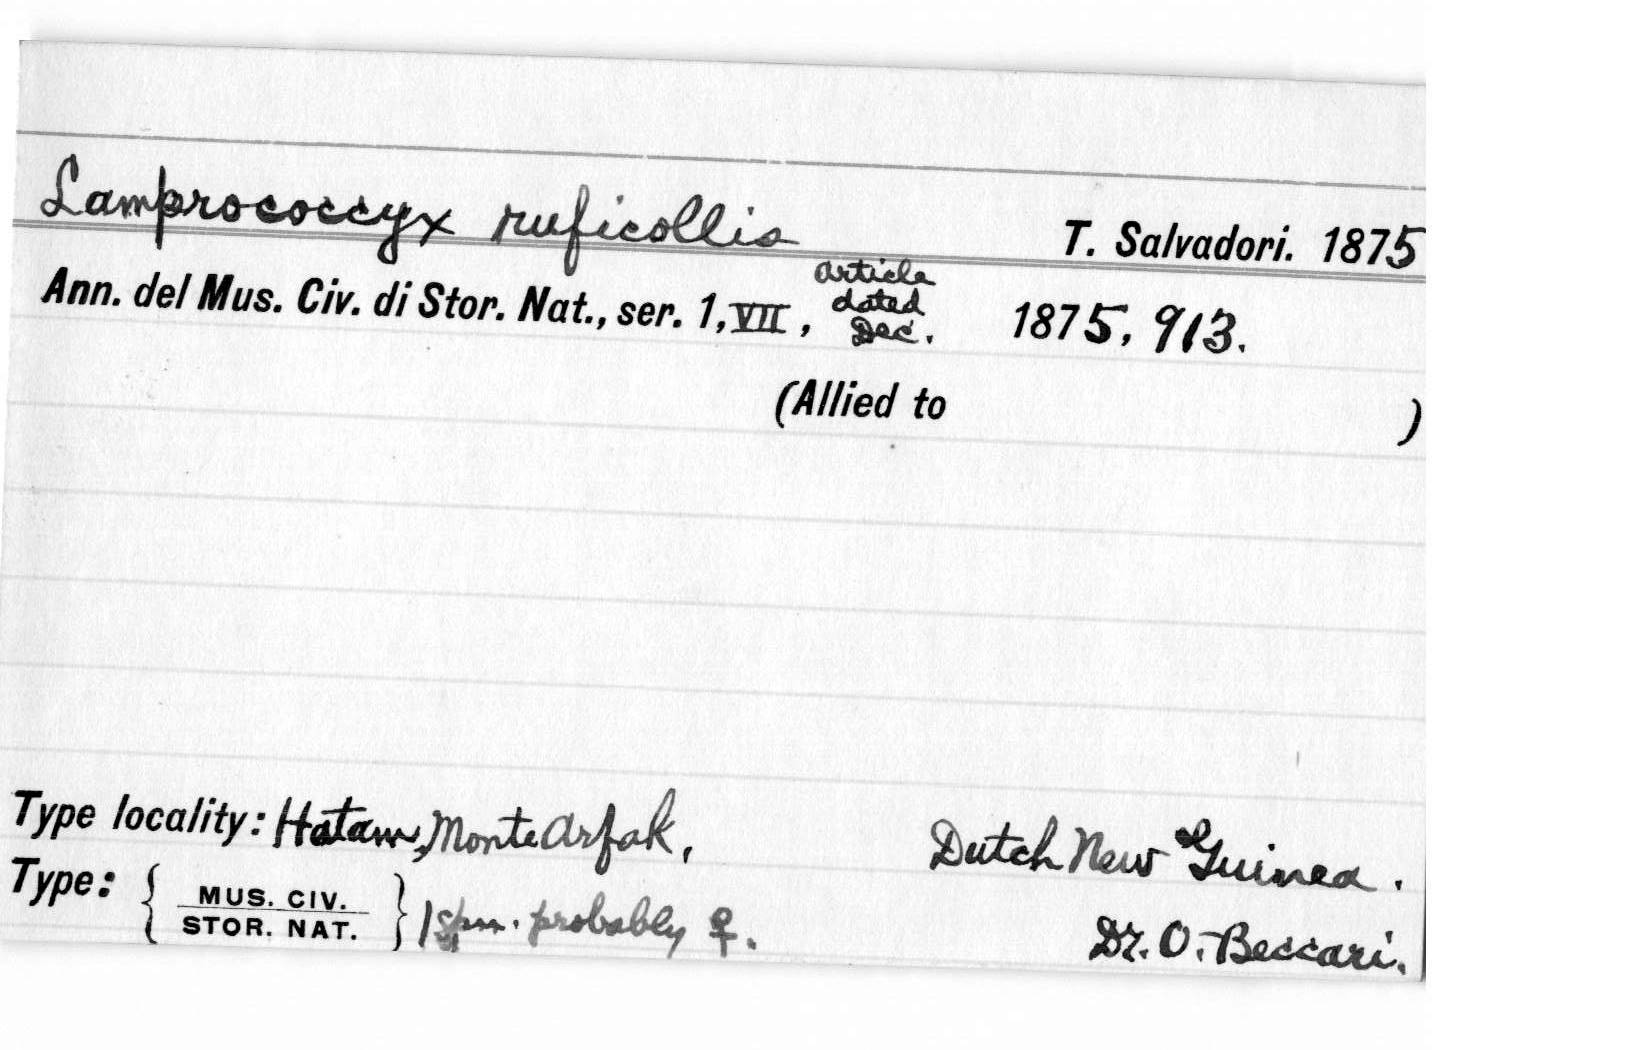 Lamprococcyx ruficollis T. Salvadori. 1875
Ann. del Mus. Civ. di Stor. Nat., ser. 1, VII, article dated Dec. 1875, 913.
(Allied to )
Type locality: Hatam, Monte Arfak, Dutch New Guinea.
Type: { MUS. CIV. STOR. NAT. } 1 spm. probably ♀. Dr. O. Beccari.